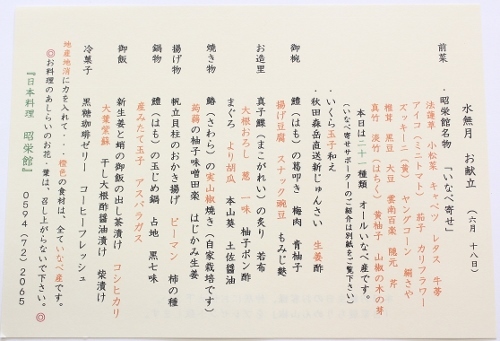 水無月　お献立　（六月　十八日）
前菜　・昭栄館名物　「いなべ寄せ」
法蓮草　小松菜　キャベツ　レタス　牛蒡
アイコ（ミニトマト）　茄子　カリフラワー
ズッキーニ（黄）　ヤングコーン　絹さや
椎茸　黒豆　大豆　雲南百薬　隠元　芹
真竹　淡竹（はちく）　黄柚子　山椒の木の芽
本日は二十一種類　オールいなべ産です。
（いなべ寄せサポーターのご紹介は別紙をご覧下さい）
・いくら玉子和え
・秋田森岳直送新じゅんさい　生姜酢
御椀　鱧（はも）の葛叩き　梅肉　青柚子
揚げ豆腐　スナック豌豆　もみじ麩
お造里　真子鰈（まこがれい）の炙り　若布
大根おろし　葱　一味　柚子ポン酢
まぐろ　より胡瓜　本山葵　土佐醤油
焼き物　鰆（さわら）の実山椒焼き（自家栽培です）
蒟蒻の柚子味噌田楽　はじかみ生姜
揚げ物　帆立貝柱のおかき揚げ　ピーマン　柿の種
鍋物　鱧（はも）の玉じめ鍋　占地　黒七味
産みたて玉子　アスパラガス
御飯　新生姜と蛸の御飯の出し茶漬け　コシヒカリ
大葉紫蘇　干し大根酢醤油漬け　柴漬け
冷菓子　黒糖珈琲ゼリー　コーヒーフレッシュ
地産地消に力を入れて・・・橙色の食材は、全ていなべ産です。
◎お料理のあしらいのお花・葉は、召し上がらないで下さい。◎
『日本料理　昭栄館』　０５９４（７２）２０６５